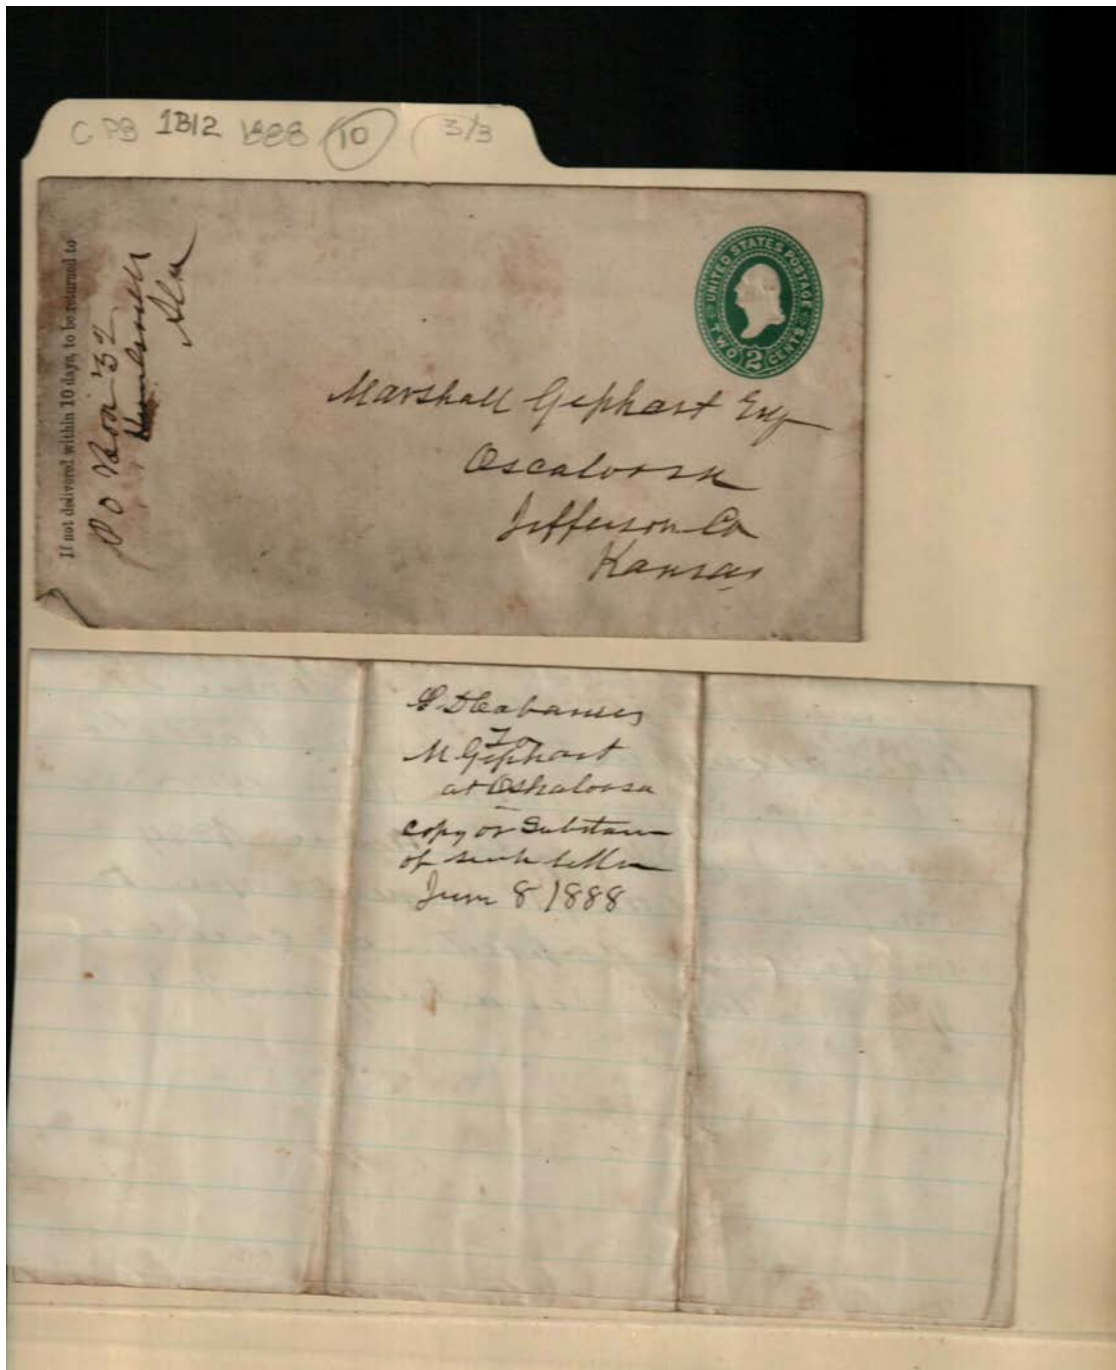 C PB 1B12 1888 10 3/3
If not delivered within 10 days, to be returned to
P O Box 32
Huntsville
Ala
UNITED STATES POSTAGE
TWO 2 CENTS
Marshall Gephart Esq
Oscaloosa
Jefferson Co
Kansas
Cabaniss
To
M Gephart
at Oskaloosa
copy or Substance
of such letter
June 8 1888